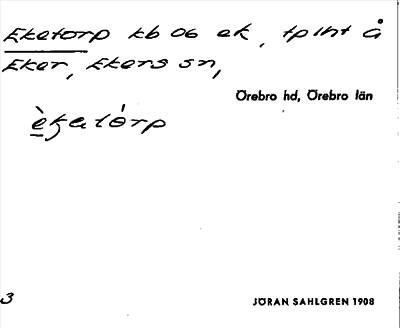 Eketorp kb 06 ek, tp int å
Eker, Ekers sn,
Örebro hd, Örebro län
èkatórp
3
JÖRAN SAHLGREN 1908